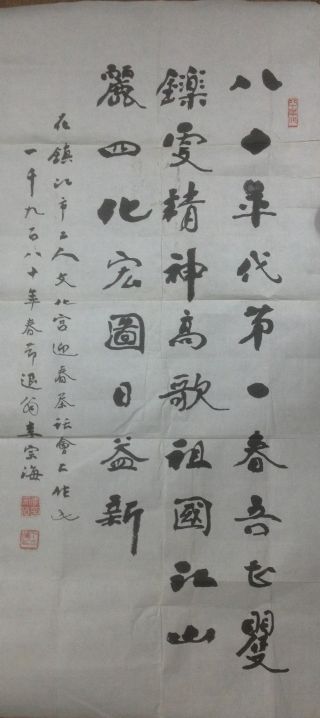 八十年代第一春吾老矍
鑠更精神高歌祖國江山
麗四化宏圖日益新
在鎮江市工人文化宮迎春茶話會上作也
一千九百八十年春節退翁李宗海